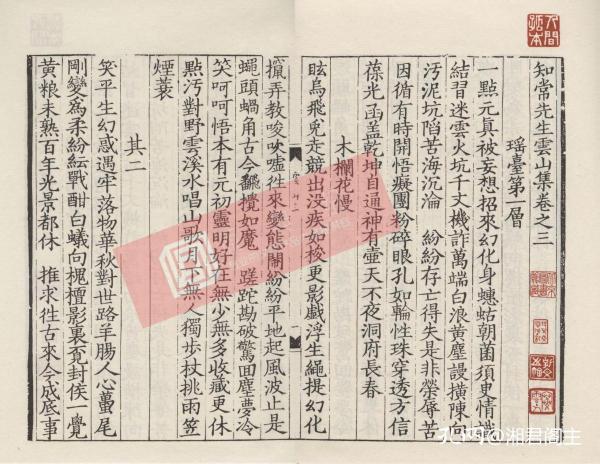 知常先生雲山集卷之三
瑶臺第一層
一點元真被妄想招來幻化身蟪蛄朝菌須臾情識
結習迷雲火坑千丈機詐萬端白浪黄塵謾横陳向
汚泥坑陷苦海沉淪　紛紛存亡得失是非榮辱苦
因循有時開悟癡團粉碎眼孔如輪性珠穿透方信
葆光函盖乾坤自通神有壺天不夜洞府長春
木欄花慢
眩烏飛兔走競出没疾如梭更影戲浮生繩提幻化
攛弄教唆吠噓徃來變態鬧紛紛平地起風波止是
蠅頭蝸角古今翻攪如魔　蹉跎勘破驚回塵夢冷
笑呵呵悟本有元初靈明好在無少無多收藏更休
點汚對野雲溪水唱山歌月下無人獨步杖挑雨笠
煙蓑
其二
笑平生幻惑遇牢落物華秋對世路羊腸人心蠆尾
剛變爲柔紛紜戰酣白蟻向槐檀影裏覓封侯　覺
黄粮未熟百年光景都休　推求徃古來今成底事
@湘君阁主